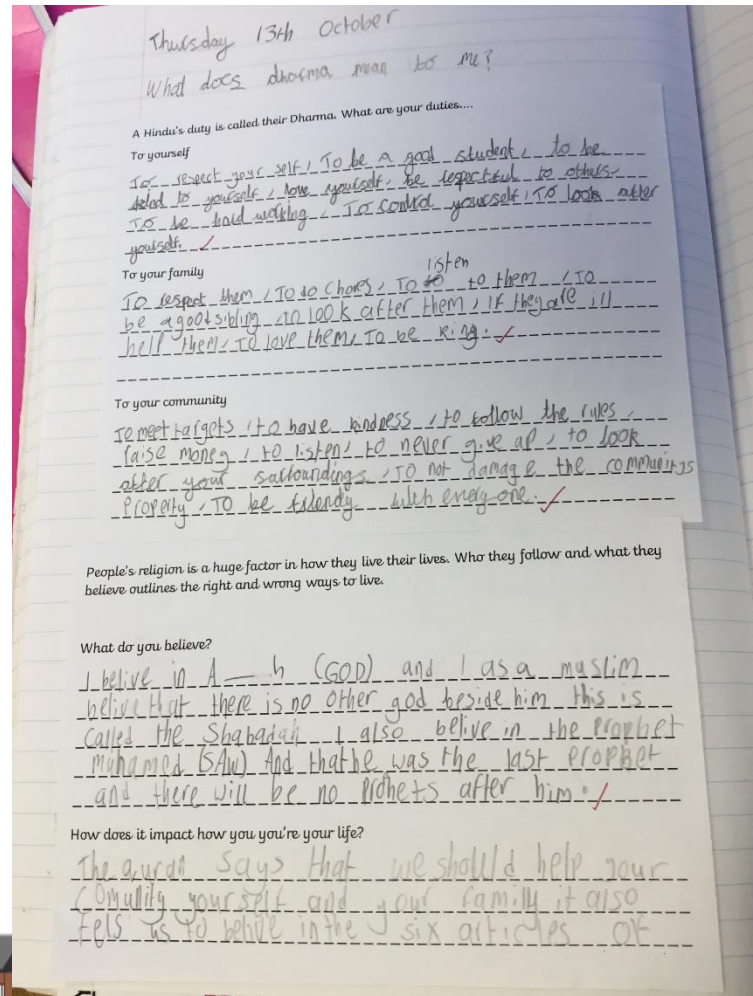 Thursday 13th October
What does dharma mean to me?
A Hindu's duty is called their Dharma. What are your duties....
To yourself
To respect your self, To be a good student, to be
kind to yourself, love yourself, be respectful to others,
To be hard working, To control yourself, To look after
yourself.
To your family
listen
To respect them, To do chores, To to them, To
be a good sibling, to look after them, If they are ill
help them, To love them, To be king.
To your community
To meet targets, to have kindness, to follow the rules,
raise money, to listen, to never give up, to look
after your sarroundings, To not damage the communitys
Property, To be friendy with every one.
People's religion is a huge factor in how they live their lives. Who they follow and what they
believe outlines the right and wrong ways to live.
What do you believe?
I belive in A—h (GOD) and I as a muslim
belive that there is no other god beside him this is
called the Shahadah I also belive in the Prophet
Muhamed (SAW) And that he was the last prophet
and there will be no Prohets after him.
How does it impact how you you're your life?
The quran says that we should help your
Comunity yourself and your family it also
tels us to belive in the six articles of